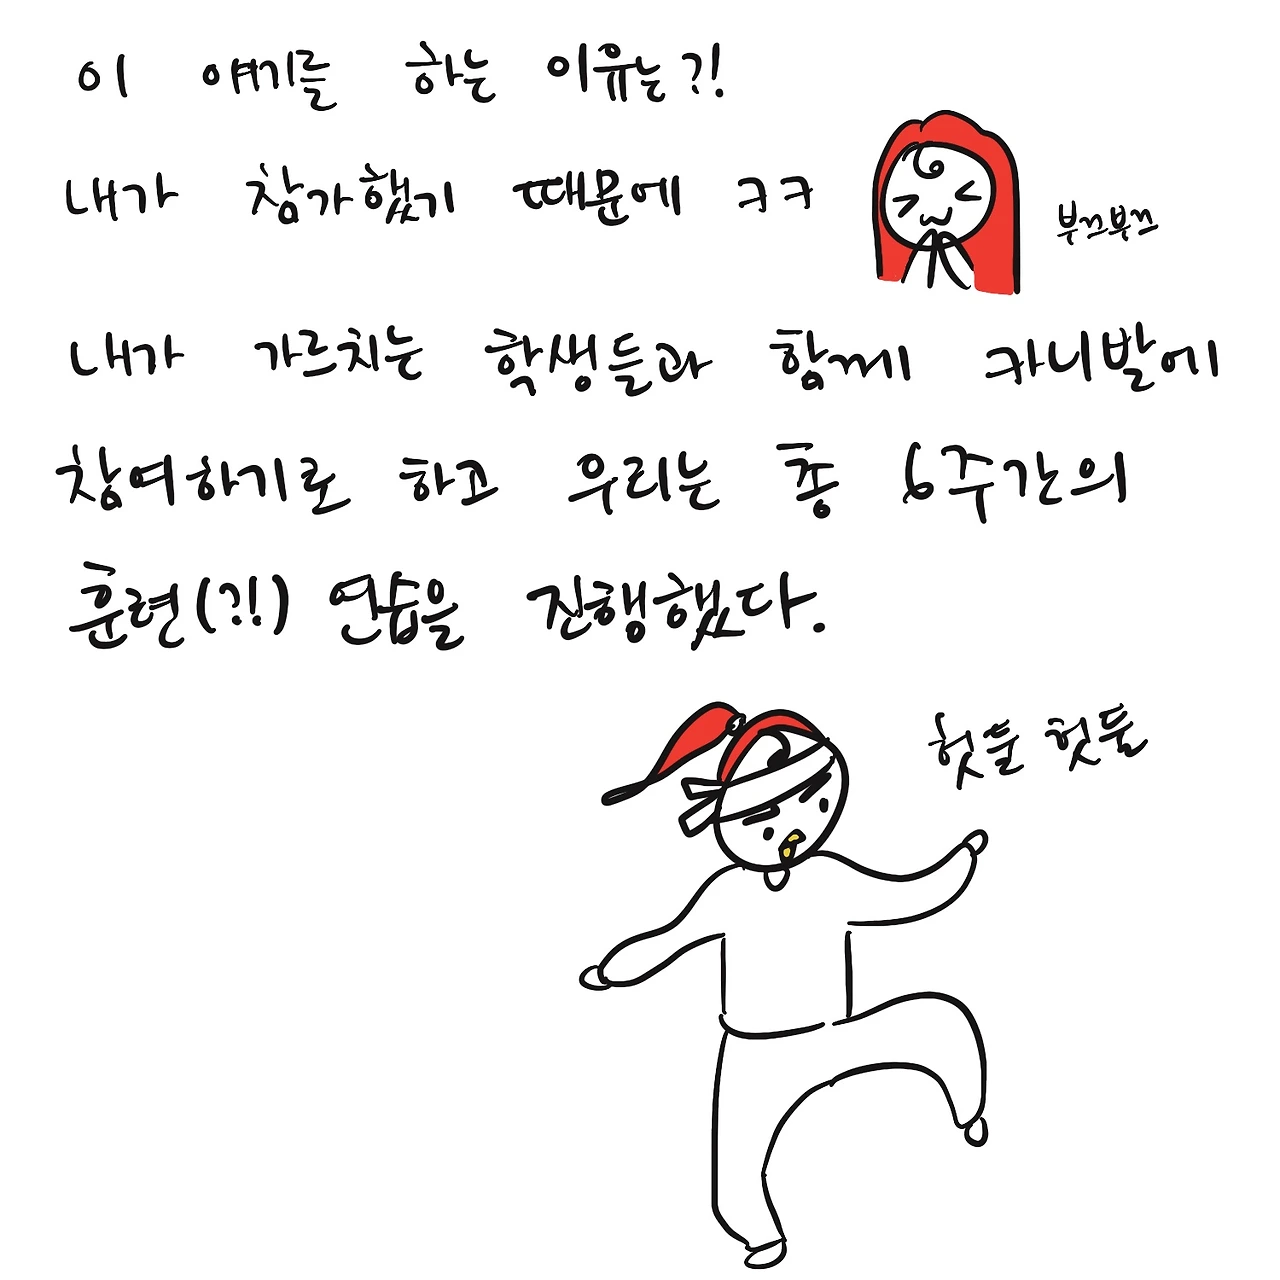 이 얘기를 하는 이유는?!
내가 참가했기 때문에 ㅋㅋ
부끄부끄
내가 가르치는 학생들과 함께 카니발에
참여하기로 하고 우리는 총 6주간의
훈련(?!) 연습을 진행했다.
헛둘 헛둘